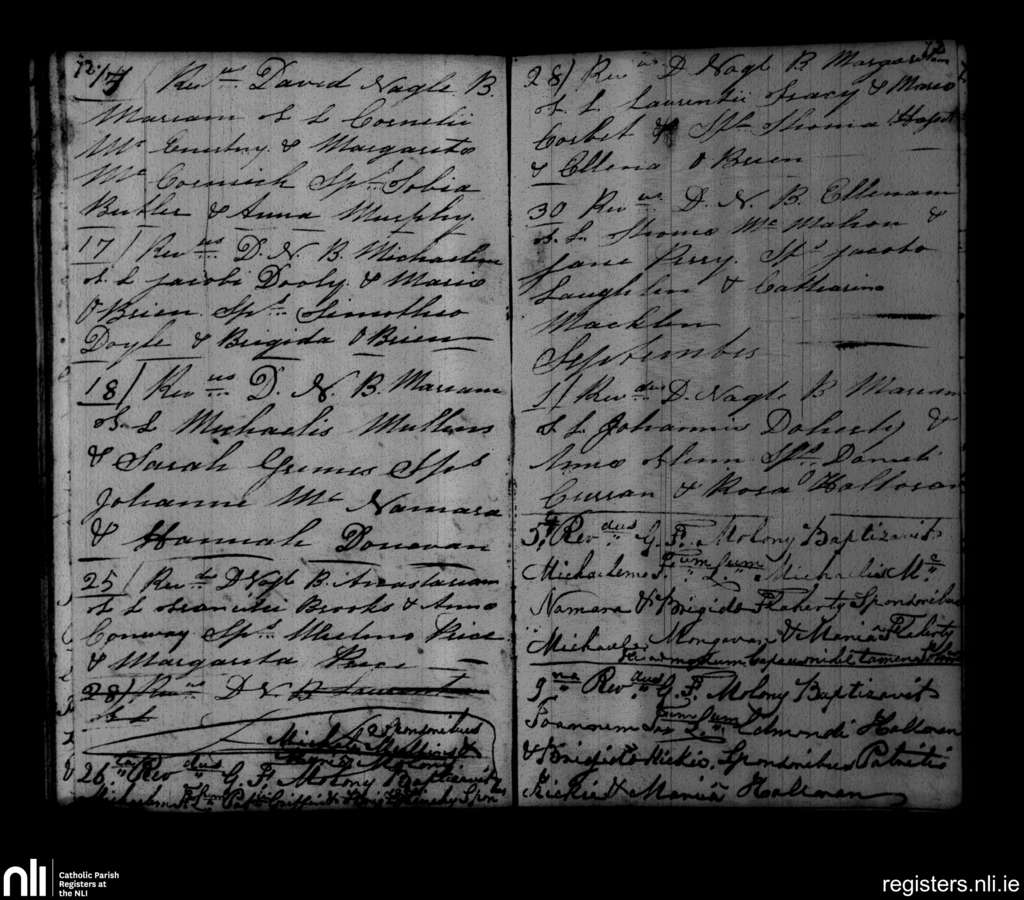 Revus David Nagle B.
Mariam f. L Cornelii
Mc & Margarita
Mc Cormick Sps. Tobia
Butler & Anna Murphy.
17 / Revus D. N. B. Michaelem
f. L Jacobi Dooly & Maria
O Brien. Sps. Timotheo
Doyle & Brigida O Brien
18 / Revus D. N. B. Mariam
f. L Michaelis Mullins
& Sarah Grimes Sps
Johanne Mc Namara
& Hannah Donovan
25 / Revds D Nagle B. Anastasiam
f. L Francisci Brooks & Anna
Conway Sps. Rice
& Margarita Rice
28) Revus D N B
f L
Sponsoribus
26ta Revdus G. Fz. Molony Baptizavit
28) Revus D Nagle B Margaritam
f. L Laurentii & Maria
Corbet & Sps. Thoma
& Ellena O Brien
30 Revus D. N. B. Ellenam
f. L. Thoma Mc Mahon &
Jane Perry. Sps Jacobo
Laughlin & Catharina
Macklin
Septembis
1 / Revdus D. Nagle B Mariam
f L Johannis Doherty &
Anna Sps. Danieli
Curran & Rosa Halloran
5ta Revdus G. Fz. Molony Baptizavit
Michaelem F. L. Michaelis Mc
Namara & Brigida Flaherty Sponsoribus
Michaele Mongavan & Maria Flaherty
9na Revdus G. Fz. Molony Baptizavit
Joannem F. L. Edmondi Halloran
& Brigida Hickie, Sponsoribus Patritio
Hickie & Maria Halloran
nli
Catholic Parish
Registers at
the NLI
registers.nli.ie